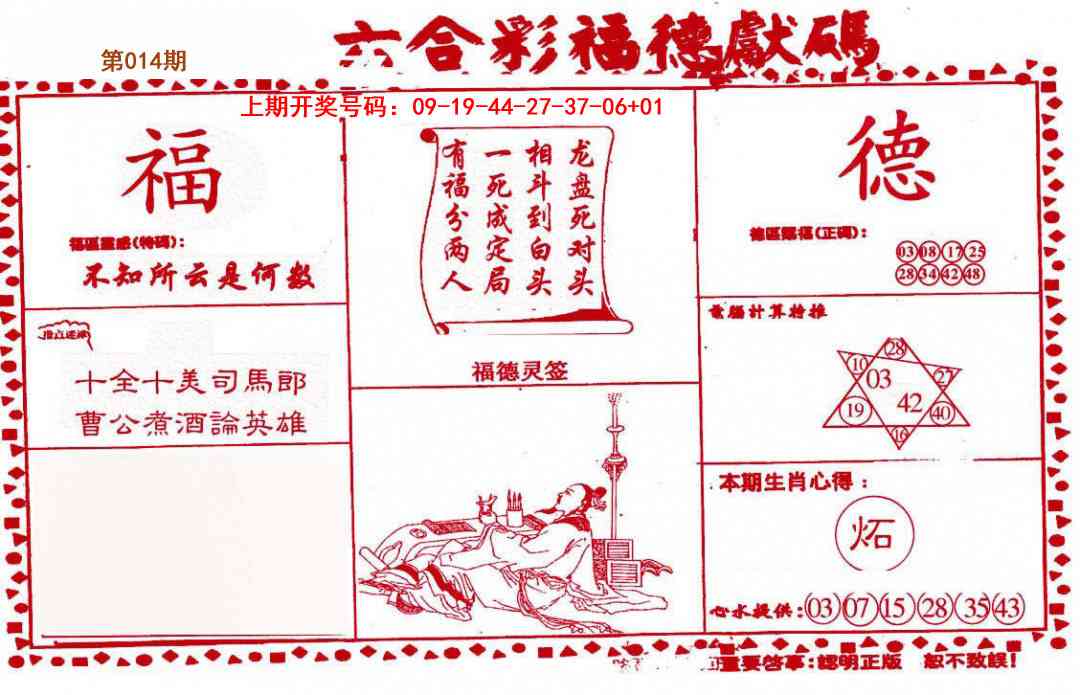 六合彩福德獻碼
第014期
上期开奖号码：09-19-44-27-37-06+01
福
福區靈感(特碼)：
不知所云是何数
十全十美司馬郎
曹公煮酒論英雄
龙盘死对头
相斗到白头
一死成定局
有福分两人
福德灵签
德
德區賜福(正碼)：
03 08 17 25
28 34 42 48
電腦計算特推
28
10 27
03
42
19 40
16
本期生肖心得：
炻
心水提供：03 07 15 28 35 43
重要啓事：認明正版 恕不致誤！